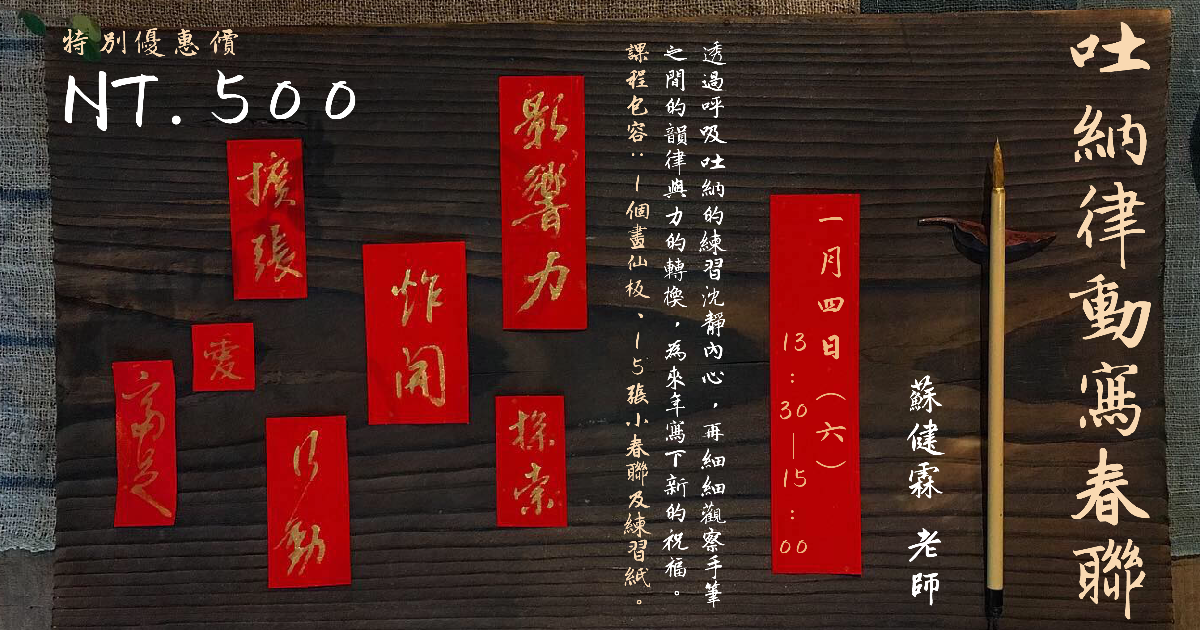 吐納律動寫春聯
蘇健霖 老師
一月四日（六）
13:30—15:00
透過呼吸吐納的練習沈靜內心，再細細觀察手筆
之間的韻律與力的轉換，為來年寫下新的祝福。
課程包容：1個畫仙板、15張小春聯及練習紙。
特別優惠價
NT.500
影響力
探索
炸開
擴張
行動
愛
富足